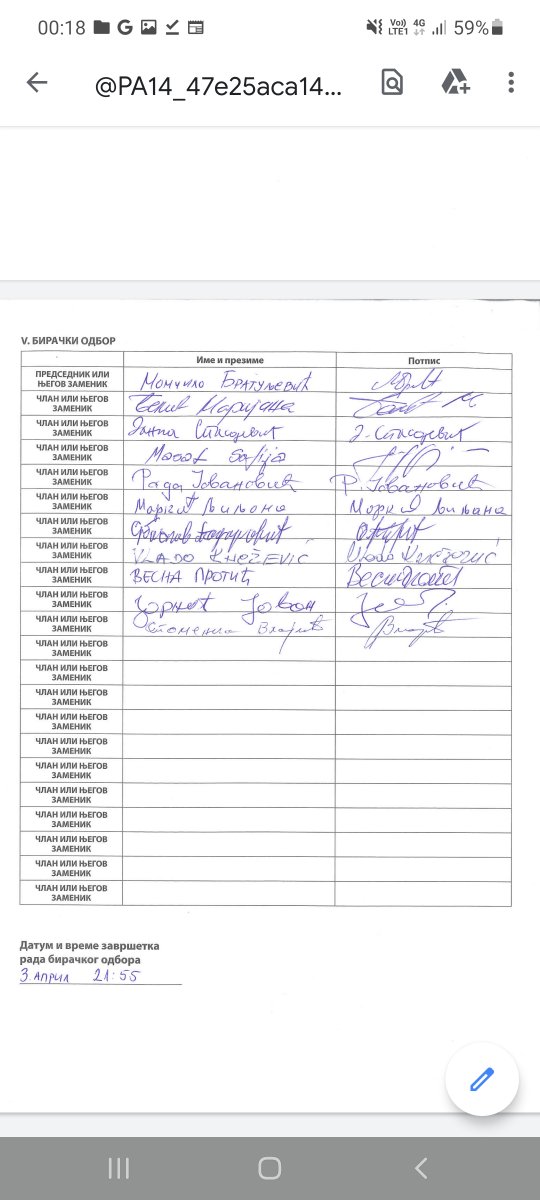 00:18
Vo)) 4G LTE1 59%
@PA14_47e25aca14...
V. БИРАЧКИ ОДБОР
Име и презиме Потпис
ПРЕДСЕДНИК ИЛИ ЊЕГОВ ЗАМЕНИК Момчило Братуљевић
ЧЛАН ИЛИ ЊЕГОВ ЗАМЕНИК Маријана
ЧЛАН ИЛИ ЊЕГОВ ЗАМЕНИК
ЧЛАН ИЛИ ЊЕГОВ ЗАМЕНИК Sofija
ЧЛАН ИЛИ ЊЕГОВ ЗАМЕНИК Рада Јовановић Р. Јовановић
ЧЛАН ИЛИ ЊЕГОВ ЗАМЕНИК Љиљана Љиљана
ЧЛАН ИЛИ ЊЕГОВ ЗАМЕНИК
ЧЛАН ИЛИ ЊЕГОВ ЗАМЕНИК VLADO KNEŽEVIĆ
ЧЛАН ИЛИ ЊЕГОВ ЗАМЕНИК ВЕСНА ПРОТИЋ
ЧЛАН ИЛИ ЊЕГОВ ЗАМЕНИК Јован
ЧЛАН ИЛИ ЊЕГОВ ЗАМЕНИК
ЧЛАН ИЛИ ЊЕГОВ ЗАМЕНИК
ЧЛАН ИЛИ ЊЕГОВ ЗАМЕНИК
ЧЛАН ИЛИ ЊЕГОВ ЗАМЕНИК
ЧЛАН ИЛИ ЊЕГОВ ЗАМЕНИК
ЧЛАН ИЛИ ЊЕГОВ ЗАМЕНИК
ЧЛАН ИЛИ ЊЕГОВ ЗАМЕНИК
ЧЛАН ИЛИ ЊЕГОВ ЗАМЕНИК
ЧЛАН ИЛИ ЊЕГОВ ЗАМЕНИК
ЧЛАН ИЛИ ЊЕГОВ ЗАМЕНИК
ЧЛАН ИЛИ ЊЕГОВ ЗАМЕНИК
ЧЛАН ИЛИ ЊЕГОВ ЗАМЕНИК
Датум и време завршетка
рада бирачког одбора
3. април 21:55